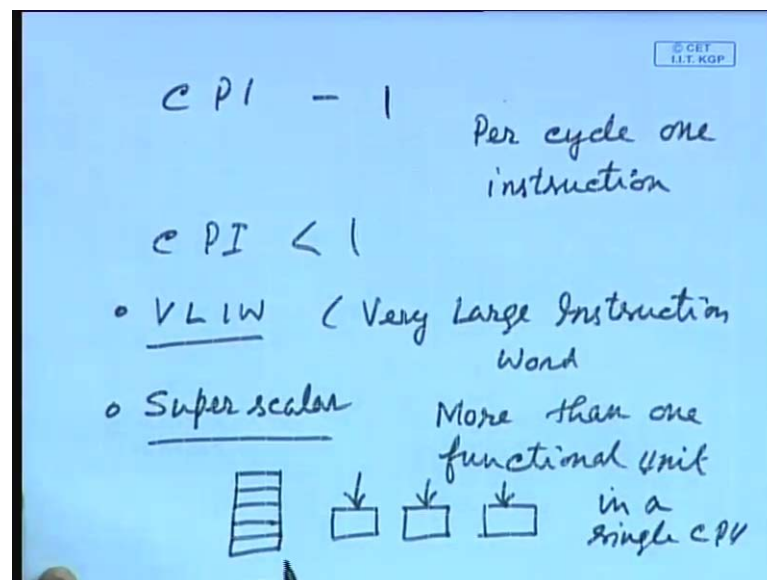 © CET
I.I.T. KGP
CPI - 1
Per cycle one
instruction
CPI < 1
• VLIW ( Very Large Instruction
Word
• Super scalar More than one
functional unit
in a
single CPU